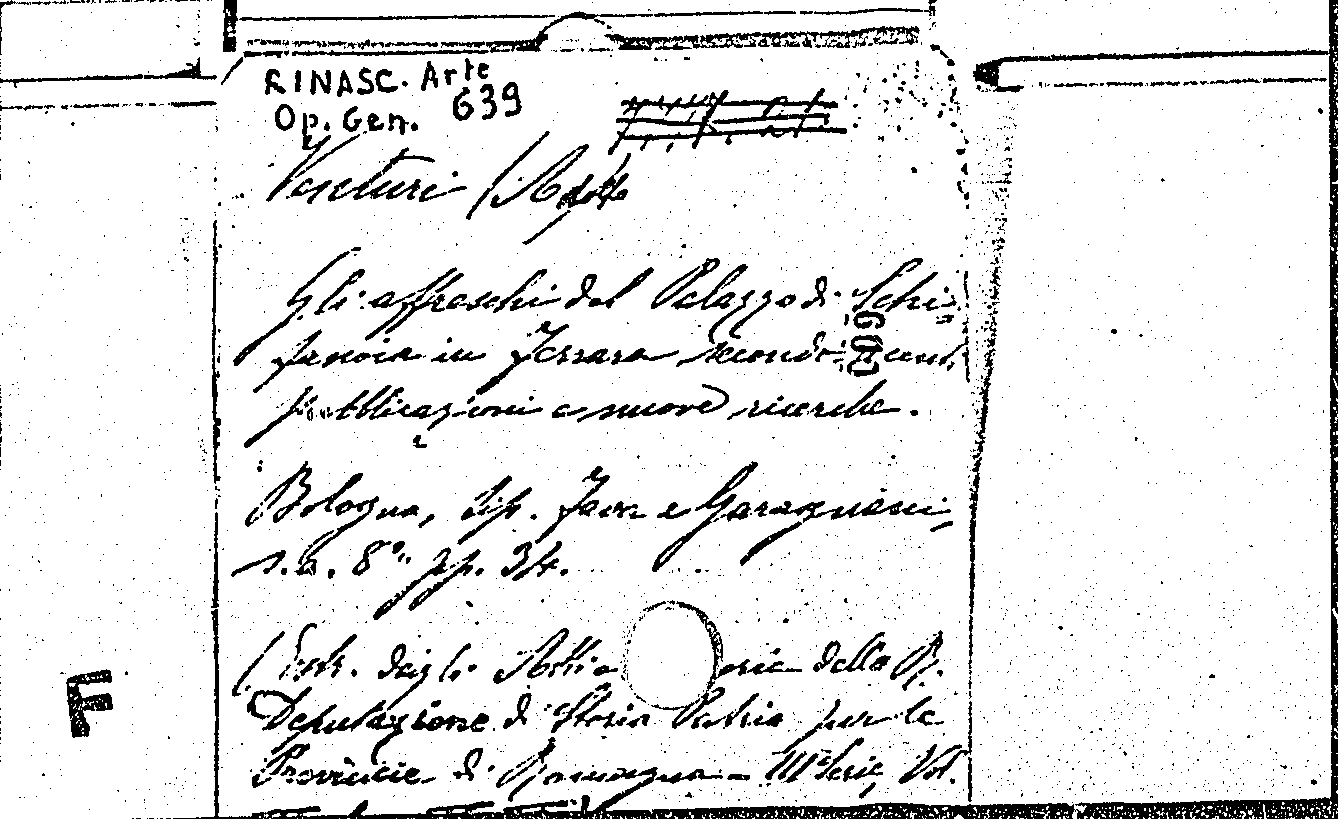 RINASC. Arte
Op. Gen. 639
Venturi (Adolfo
Gli affreschi del Palazzo di Schi=
fanoia in Ferrara secondo recenti
pubblicazioni e nuove ricerche.
Bologna, tip. Fava e Garagnani,
s.a. 8° pp. 34.
(Estr. dagli Atti e orie della R.
Deputazione di Storia Patria per le
Provincie di Romagna - III Serie, Vol.
600
F